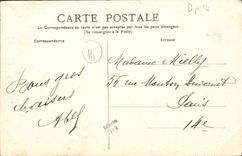 CARTE POSTALE
La Correspondance au recto n'est pas acceptée par tous les pays étrangers
(Se renseigner à la Poste)
Correspondance
Adresse
Bons gros
baisers
Abel
Madame Mielly
56 rue
Paris
14e